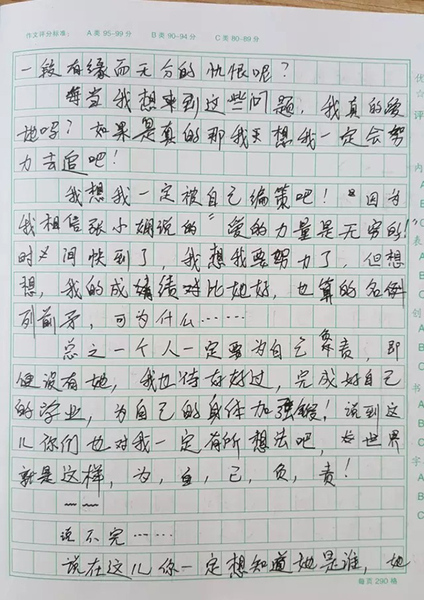 作文评分标准: A类95-99分 B类90-94分 C类80-89分
一段有缘而无分的忧恨呢?
每当我想来到这些问题,我真的爱
她吗?如果是真的那我天想我一定会努
力去追吧!
我想我一定被自己编策吧!因为
我相信张小娴说的"爱的力量是无穷的!"
时间快到了,我想我要努力了,但想
想,我的成绩对比她好,也算的名例
列前矛,可为什么……
总之一个人一定要为自己负责,即
便没有她,我也待好好过,完成好自己
的学业,为自己的身体加强锻!说到这
儿你们也对我一定有所想法吧,世界
就是这样,为,自,己,负,责!
说不完……
说在这儿你一定想知道她是谁,她
每页290格
优
☆
评
内
A
B
C
表
A
B
C
创
A
B
C
字
A
B
C